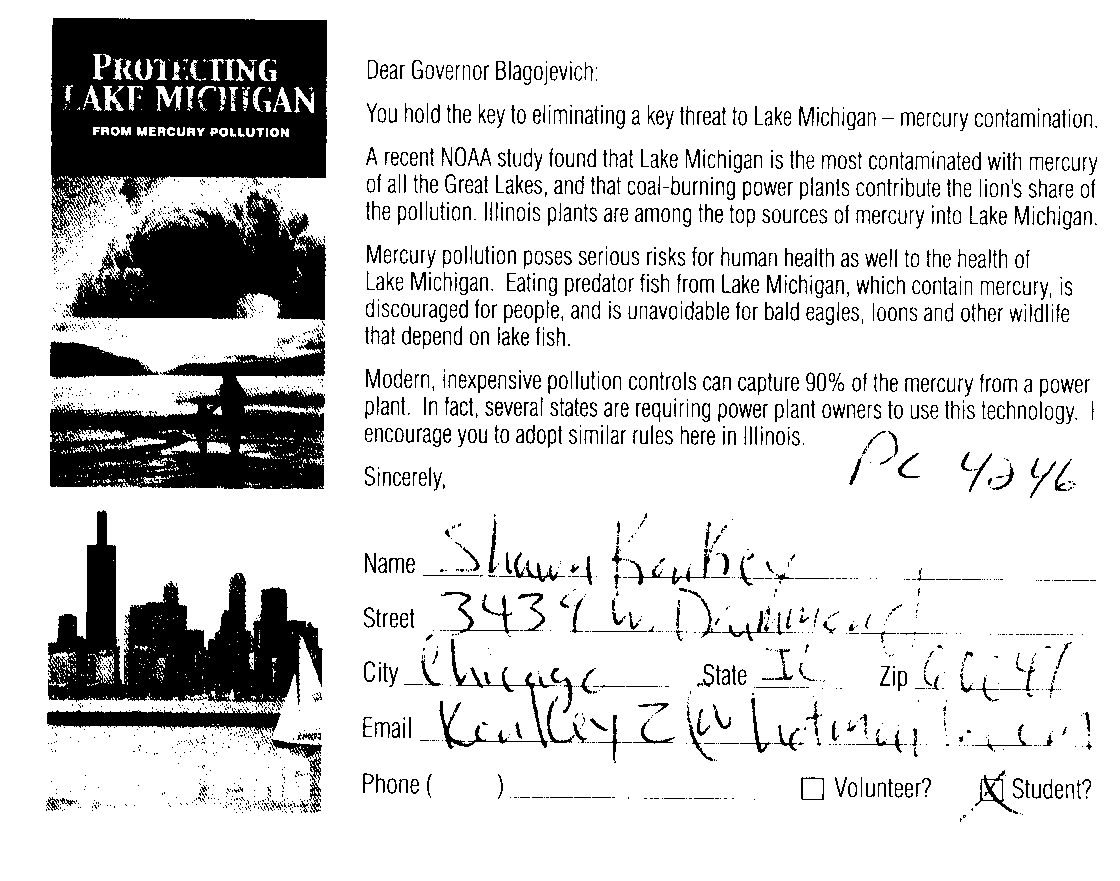 PROTECTING
LAKE MICHIGAN
FROM MERCURY POLLUTION
Dear Governor Blagojevich:
You hold the key to eliminating a key threat to Lake Michigan – mercury contamination.
A recent NOAA study found that Lake Michigan is the most contaminated with mercury
of all the Great Lakes, and that coal-burning power plants contribute the lion's share of
the pollution. Illinois plants are among the top sources of mercury into Lake Michigan.
Mercury pollution poses serious risks for human health as well to the health of
Lake Michigan. Eating predator fish from Lake Michigan, which contain mercury, is
discouraged for people, and is unavoidable for bald eagles, loons and other wildlife
that depend on lake fish.
Modern, inexpensive pollution controls can capture 90% of the mercury from a power
plant. In fact, several states are requiring power plant owners to use this technology. I
encourage you to adopt similar rules here in Illinois.
PC 4246
Sincerely,
Name Shawn
Street 3439 W.
City Chicago State IL Zip 60647
Email
Phone ( )
Volunteer? Student?